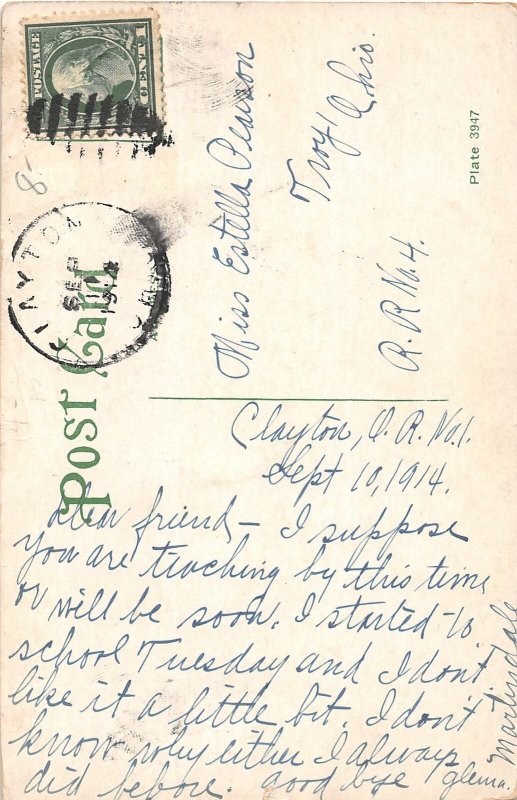 POSTAGE
Post Card
Plate 3947
CLAYTON
SEP
1914
8-
Miss Estella Pearson
Troy Ohio.
R.R No. 4.
Clayton, O. R. No. 1.
Sept 10, 1914.
dear friend - I suppose
you are teaching by this time
or will be soon. I started to
school Tuesday and I don't
like it a little bit. I don't
know why either I always
did before. good bye
glenna.
Martindale